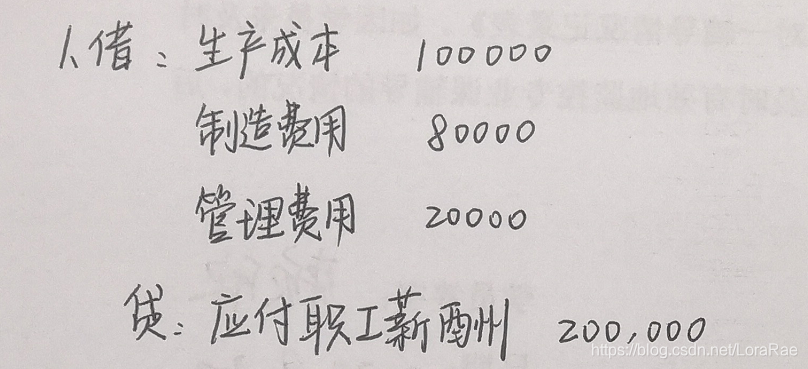 1、借：生产成本 100000
制造费用 80000
管理费用 20000
贷：应付职工薪酬州 200,000
https://blog.csdn.net/LoraRae